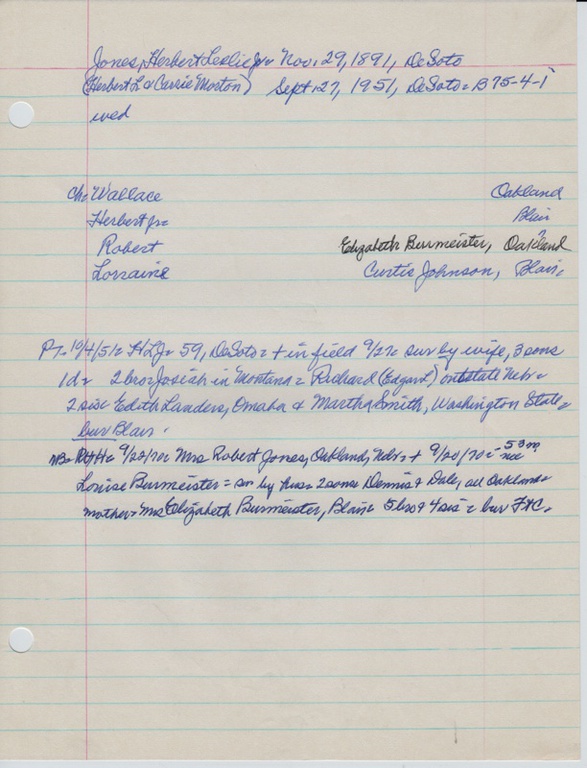 Jones, Herbert Leslie Jr= Nov. 29, 1891, DeSoto
(Herbert L & Carrie Morton) Sept. 27, 1951, DeSoto= B75-4-1
wed
Ch= Wallace Oakland
Herbert Jr= Blair
Robert Elizabeth Burmeister, Oakland ?
Lorraine Curtis Johnson, Blair=
PT= 10/4/51= HLJ= 59, DeSoto= + in field 9/27= sur by wife, 3 sons
1 d= 2 bro= Josiah in Montana= Richard (Edgar L) outstate Nebr=
2 sis= Edith Landers, Omaha & Martha Smith, Washington State=
bur Blair.
9/22/70= Mrs Robert Jones, Oakland, Nebr= + 9/20/70= 53 nee
Louise Burmeister= sur by hus= 2 sons Dennis & Dale, all Oakland=
mother= Mrs Elizabeth Burmeister, Blair= 5 bro & 4 sis= bur